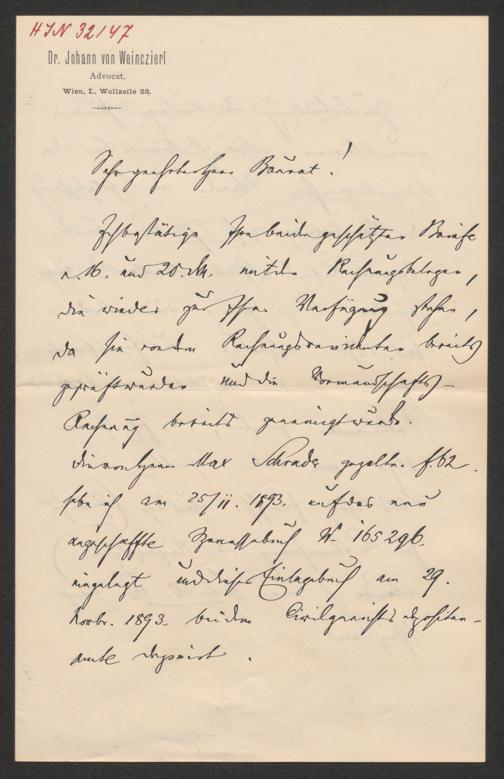 HIN 32147
Dr. Johann von Weinczierl
Advocat.
Wien, I., Wollzeile 23.
Sehr geehrter Herr Baurat!
Ich bestätige Ihre beiden geschätzten Briefe
v. 16. und 20. d.M. mit den Rechnungsbelegen,
die wieder zur Ihrer Verfügung stehen,
da sie von dem Rechnungsrevidenten bereits
geprüft wurden und die Vormundschafts-
Rechnung bereits genehmigt wurde.
Die von Herrn Max Schrader gezalten f. 62
habe ich am 25/11. 1893. auf das neu
angeschaffte Sparcassabuch No 165296.
eingelegt und dieses Einlagebuch am 29.
Novbr. 1893. bei dem Civilgerichtsdepositen-
amte deponirt.